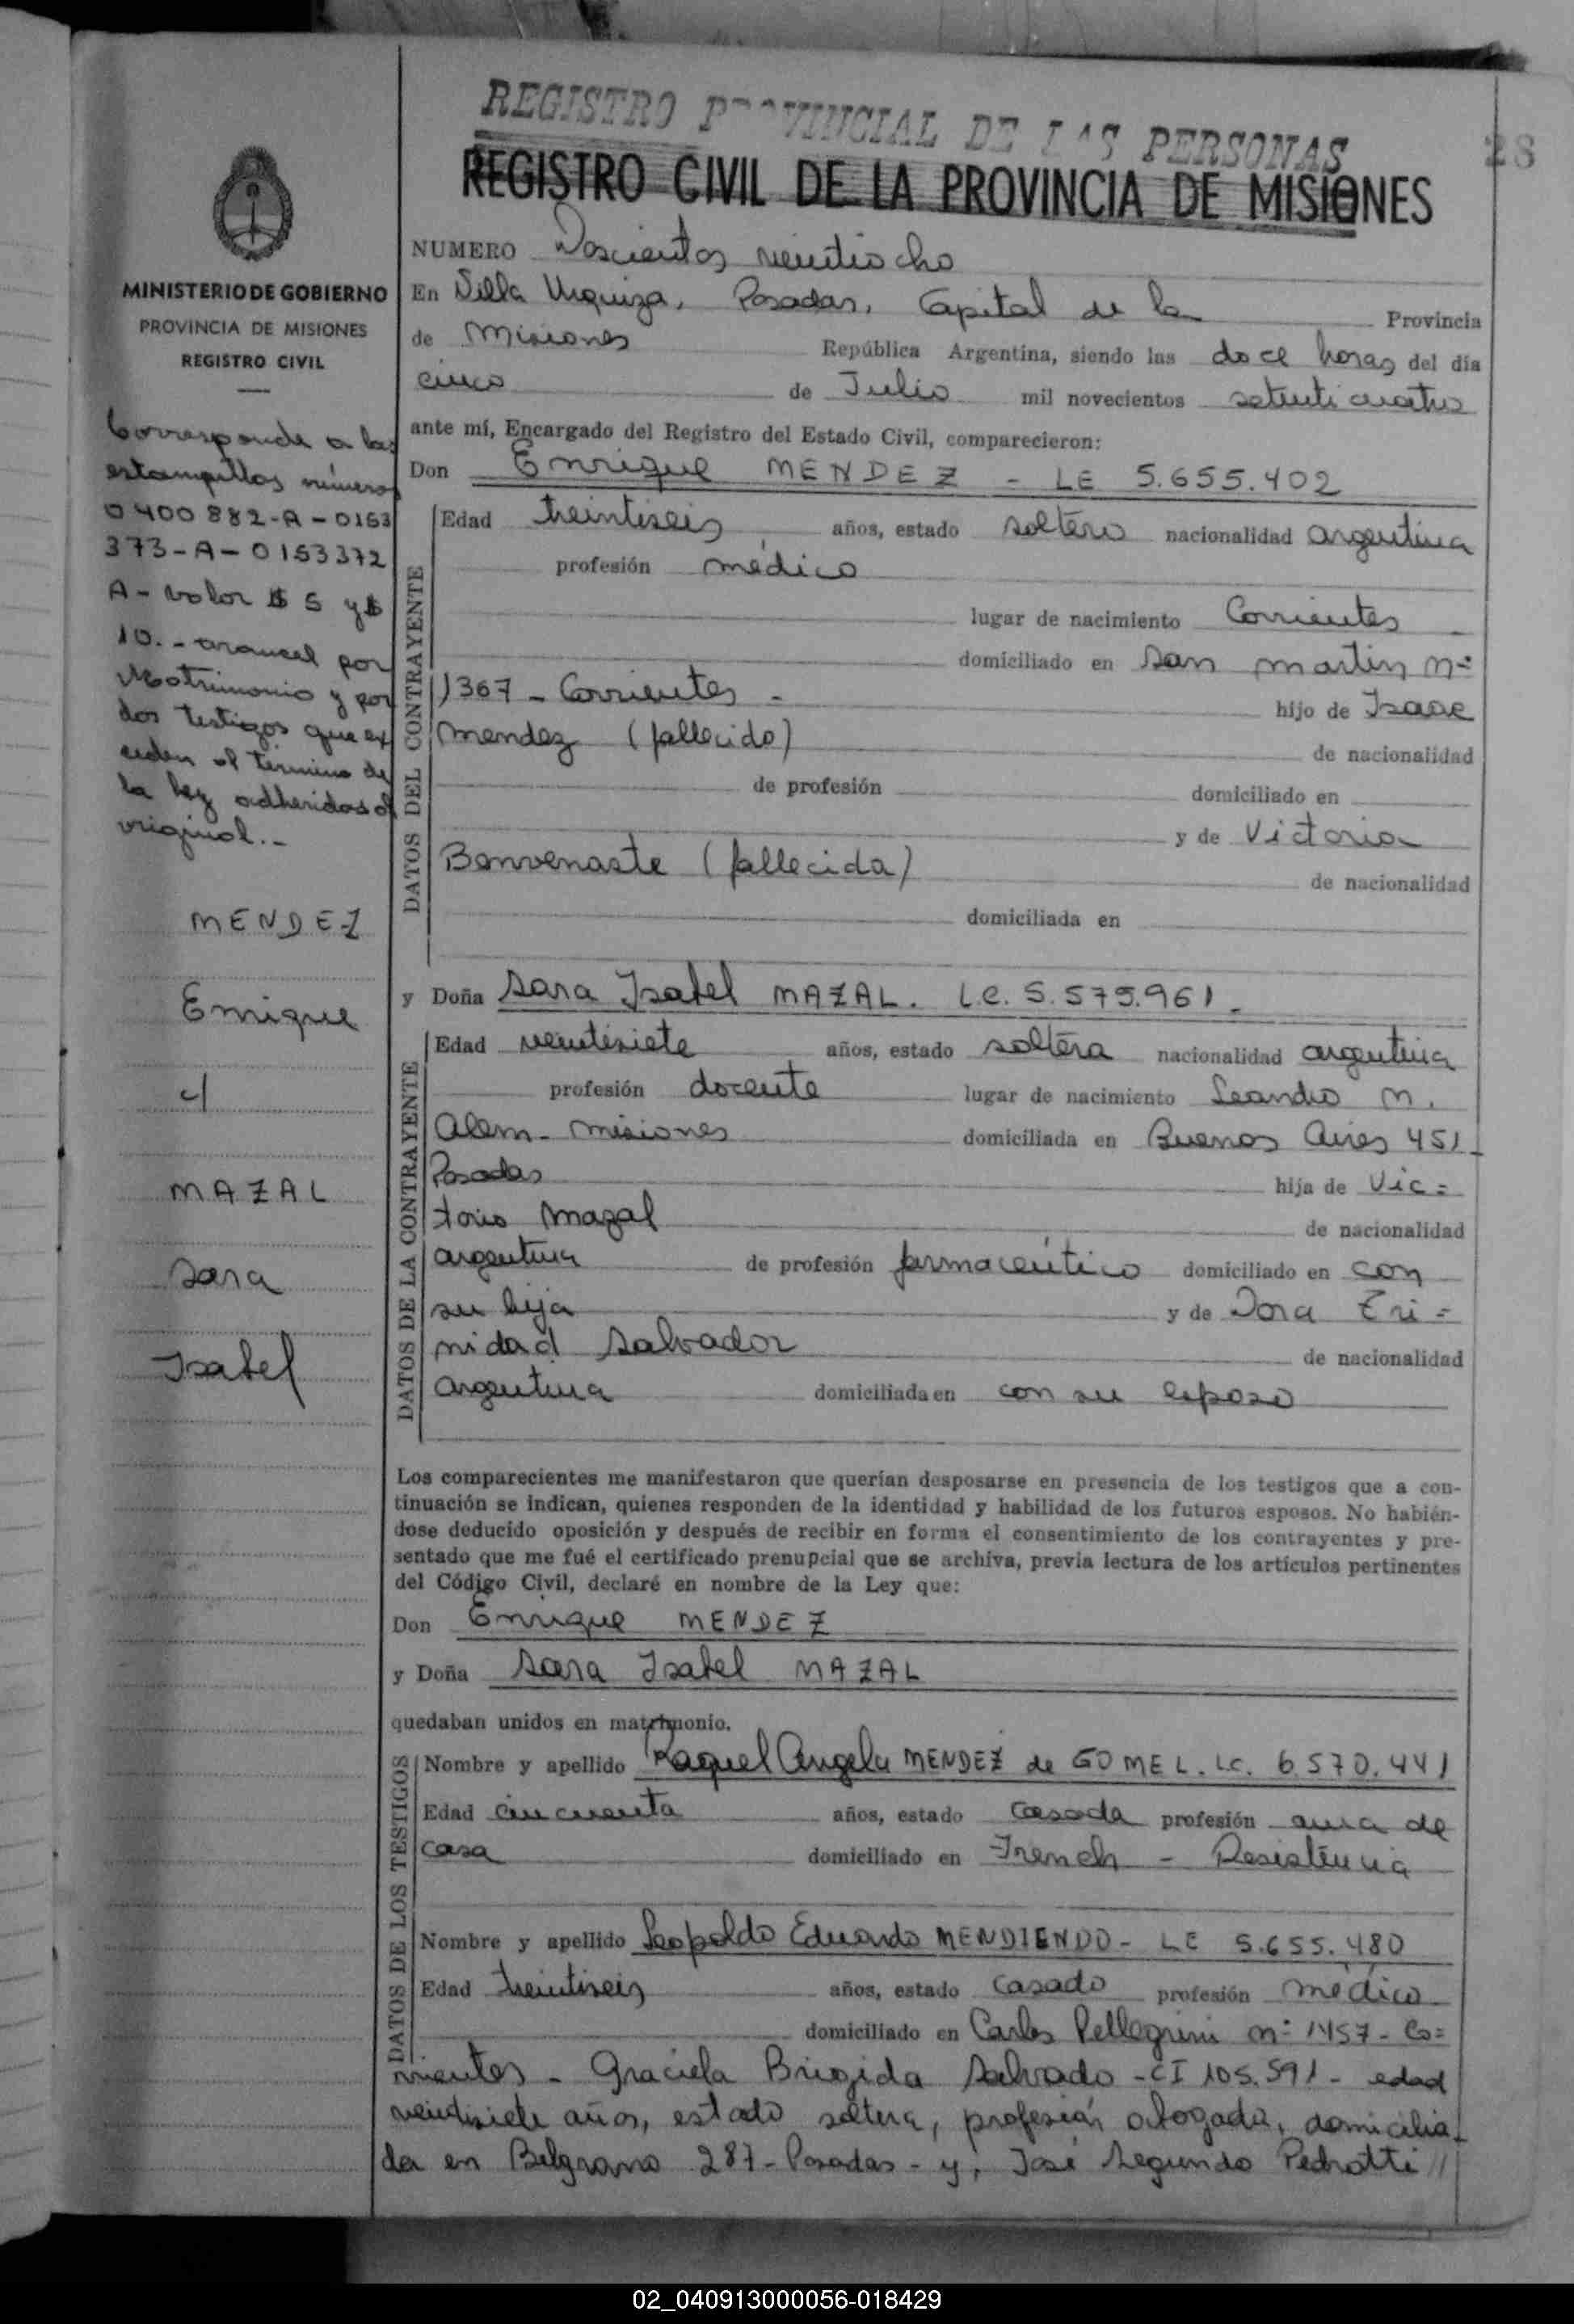 REGISTRO PROVINCIAL DE LAS PERSONAS
28
REGISTRO CIVIL DE LA PROVINCIA DE MISIONES
MINISTERIO DE GOBIERNO
PROVINCIA DE MISIONES
REGISTRO CIVIL
Corresponde a las
estampillas número
0400882-A-0153
373-A-0153372
A-valor $ 5 y $
10.- arancel por
Matrimonio y por
dos testigos que ex
ceden al término de
la ley adheridas al
original.-
MENDEZ
Enrique
c/
MAZAL
Sara
Isabel
NUMERO Doscientos veintiocho
En Villa Urquiza, Posadas, Capital de la Provincia
de Misiones República Argentina, siendo las doce horas del día
cinco de Julio mil novecientos setenticuatro
ante mí, Encargado del Registro del Estado Civil, comparecieron:
Don Enrique MENDEZ - LE 5.655.402
DATOS DEL CONTRAYENTE
Edad treintiseis años, estado soltero nacionalidad argentina
profesión médico
lugar de nacimiento Corrientes
domiciliado en San Martin Nº
1367 - Corrientes - hijo de Isaac
Mendez (fallecido) de nacionalidad
de profesión domiciliado en
y de Victoria
Benvenaste (fallecida) de nacionalidad
domiciliada en
y Doña Sara Isabel MAZAL. L.C. 5.575.961.-
DATOS DE LA CONTRAYENTE
Edad veintisiete años, estado soltera nacionalidad argentina
profesión docente lugar de nacimiento Leandro N.
Alem - Misiones domiciliada en Buenos Aires 451-
Posadas hija de Vic=
torio Mazal de nacionalidad
argentina de profesión farmaceútico domiciliado en con
su hija y de Dora Tri=
nidad Salvador de nacionalidad
argentina domiciliada en con su esposo
Los comparecientes me manifestaron que querían desposarse en presencia de los testigos que a con-
tinuación se indican, quienes responden de la identidad y habilidad de los futuros esposos. No habién-
dose deducido oposición y después de recibir en forma el consentimiento de los contrayentes y pre-
sentado que me fué el certificado prenupcial que se archiva, previa lectura de los artículos pertinentes
del Código Civil, declaré en nombre de la Ley que:
Don Enrique MENDEZ
y Doña Sara Isabel MAZAL
quedaban unidos en matrimonio.
DATOS DE LOS TESTIGOS
Nombre y apellido Raquel Angela MENDEZ de GOMEL. L.C. 6.570.441
Edad cincuenta años, estado casada profesión ama de
casa domiciliado en French - Resistencia
Nombre y apellido Leopoldo Eduardo MENDIENDO - LE 5.655.480
Edad treintiseis años, estado casado profesión médico
domiciliado en Carlos Pellegrini nº 1457 - Co=
rrientes - Graciela Brigida Salvado - CI 105.591 - edad
veintisiete años, estado soltera, profesión abogada, domicilia-
da en Belgrano 287 - Posadas - y, José Segundo Pedrotti //
02_040913000056-018429